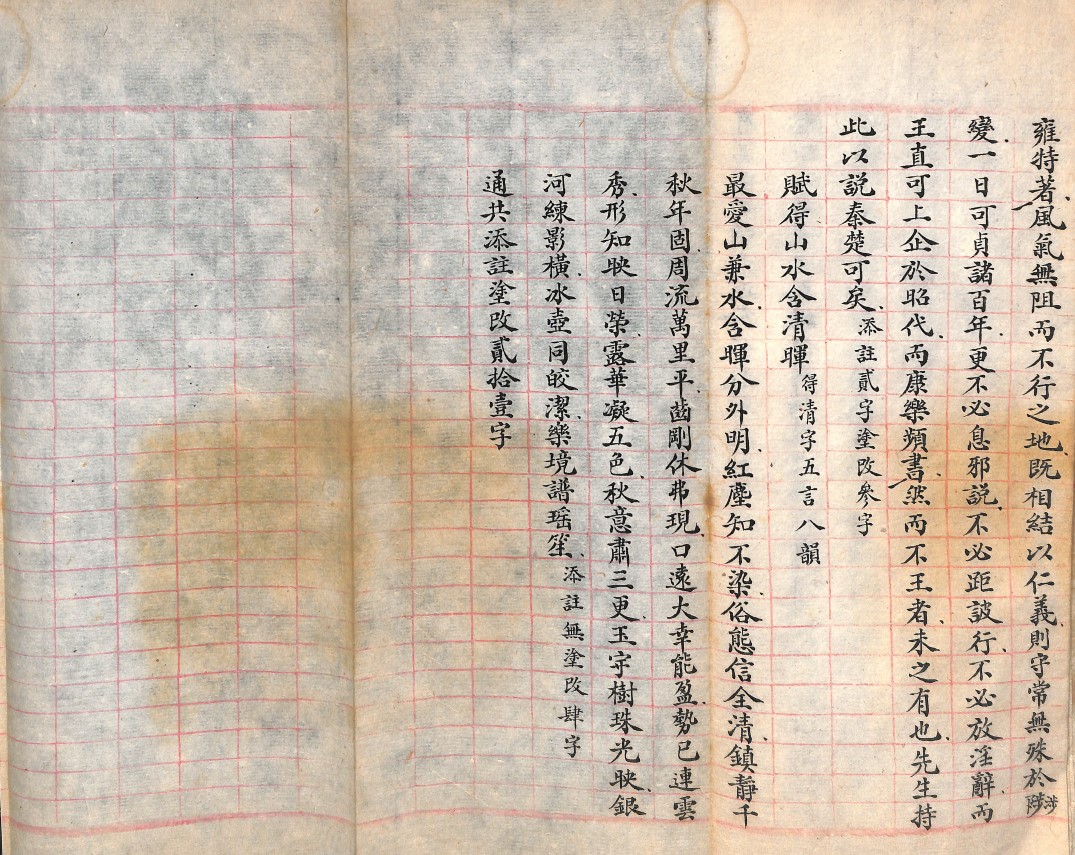 雍特著風氣無阻而不行之地既相結以仁義則守常無殊於涉
變一日可貞諸百年更不必息邪說不必距詖行不必放淫辭而
王直可上企於昭代而康樂頻書然而不王者未之有也先生持
此以説秦楚可矣添註貳字塗改參字
賦得山水含清暉得清字五言八韻
最愛山兼水含暉分外明紅塵知不染俗態信全清鎮靜千
秋年固周流萬里平齒剛休弗現口遠大幸能盈勢已連雲
秀形知映日榮露華凝五色秋意肅三更玉宇樹珠光映銀
河練影橫冰壺同皎潔樂境譜瑶笙添註無塗改肆字
通共添註塗改貳拾壹字